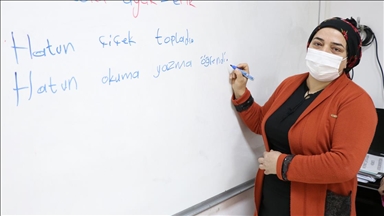 Hatun çiçek topladı
Hatun okuma yazma öğrendi